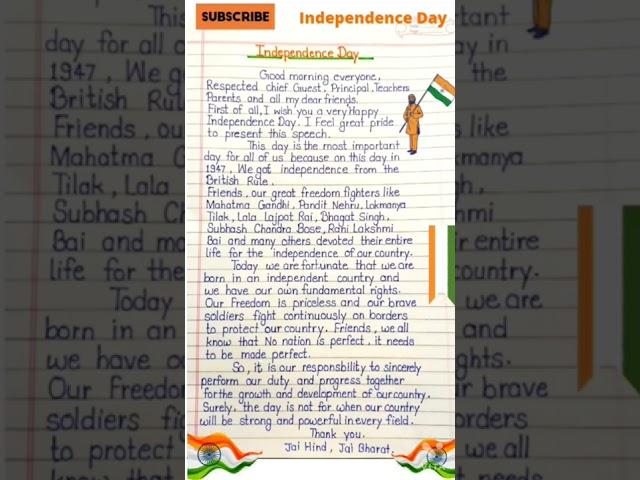 SUBSCRIBE
Independence Day
Independence Day
Good morning everyone,
Respected chief Guest, Principal, Teachers
Parents and all my dear friends.
First of all, I wish you a very Happy
Independence Day. I Feel great pride
to present this speech.
This day is the most important
day for all of us because on this day in
1947, We got independence from the
British Rule.
Friends, our great freedom fighters like
Mahatma Gandhi, Pandit Nehru, Lokmanya
Tilak, Lala Lajpat Rai, Bhagat Singh,
Subhash Chandra Bose, Rani Lakshmi
Bai and many others devoted their entire
life for the independence of our country.
Today we are fortunate that we are
born in an independent country and
we have our own fundamental rights.
Our Freedom is priceless and our brave
soldiers fight continuously on borders
to protect our country. Friends, we all
know that No nation is perfect. it needs
to be made perfect.
So, it is our responsbility to sincerely
perform our duty and progress together
for the growth and development of our country.
Surely, the day is not for when our country
will be strong and powerful in every field.
Thank you.
Jai Hind, Jai Bharat.